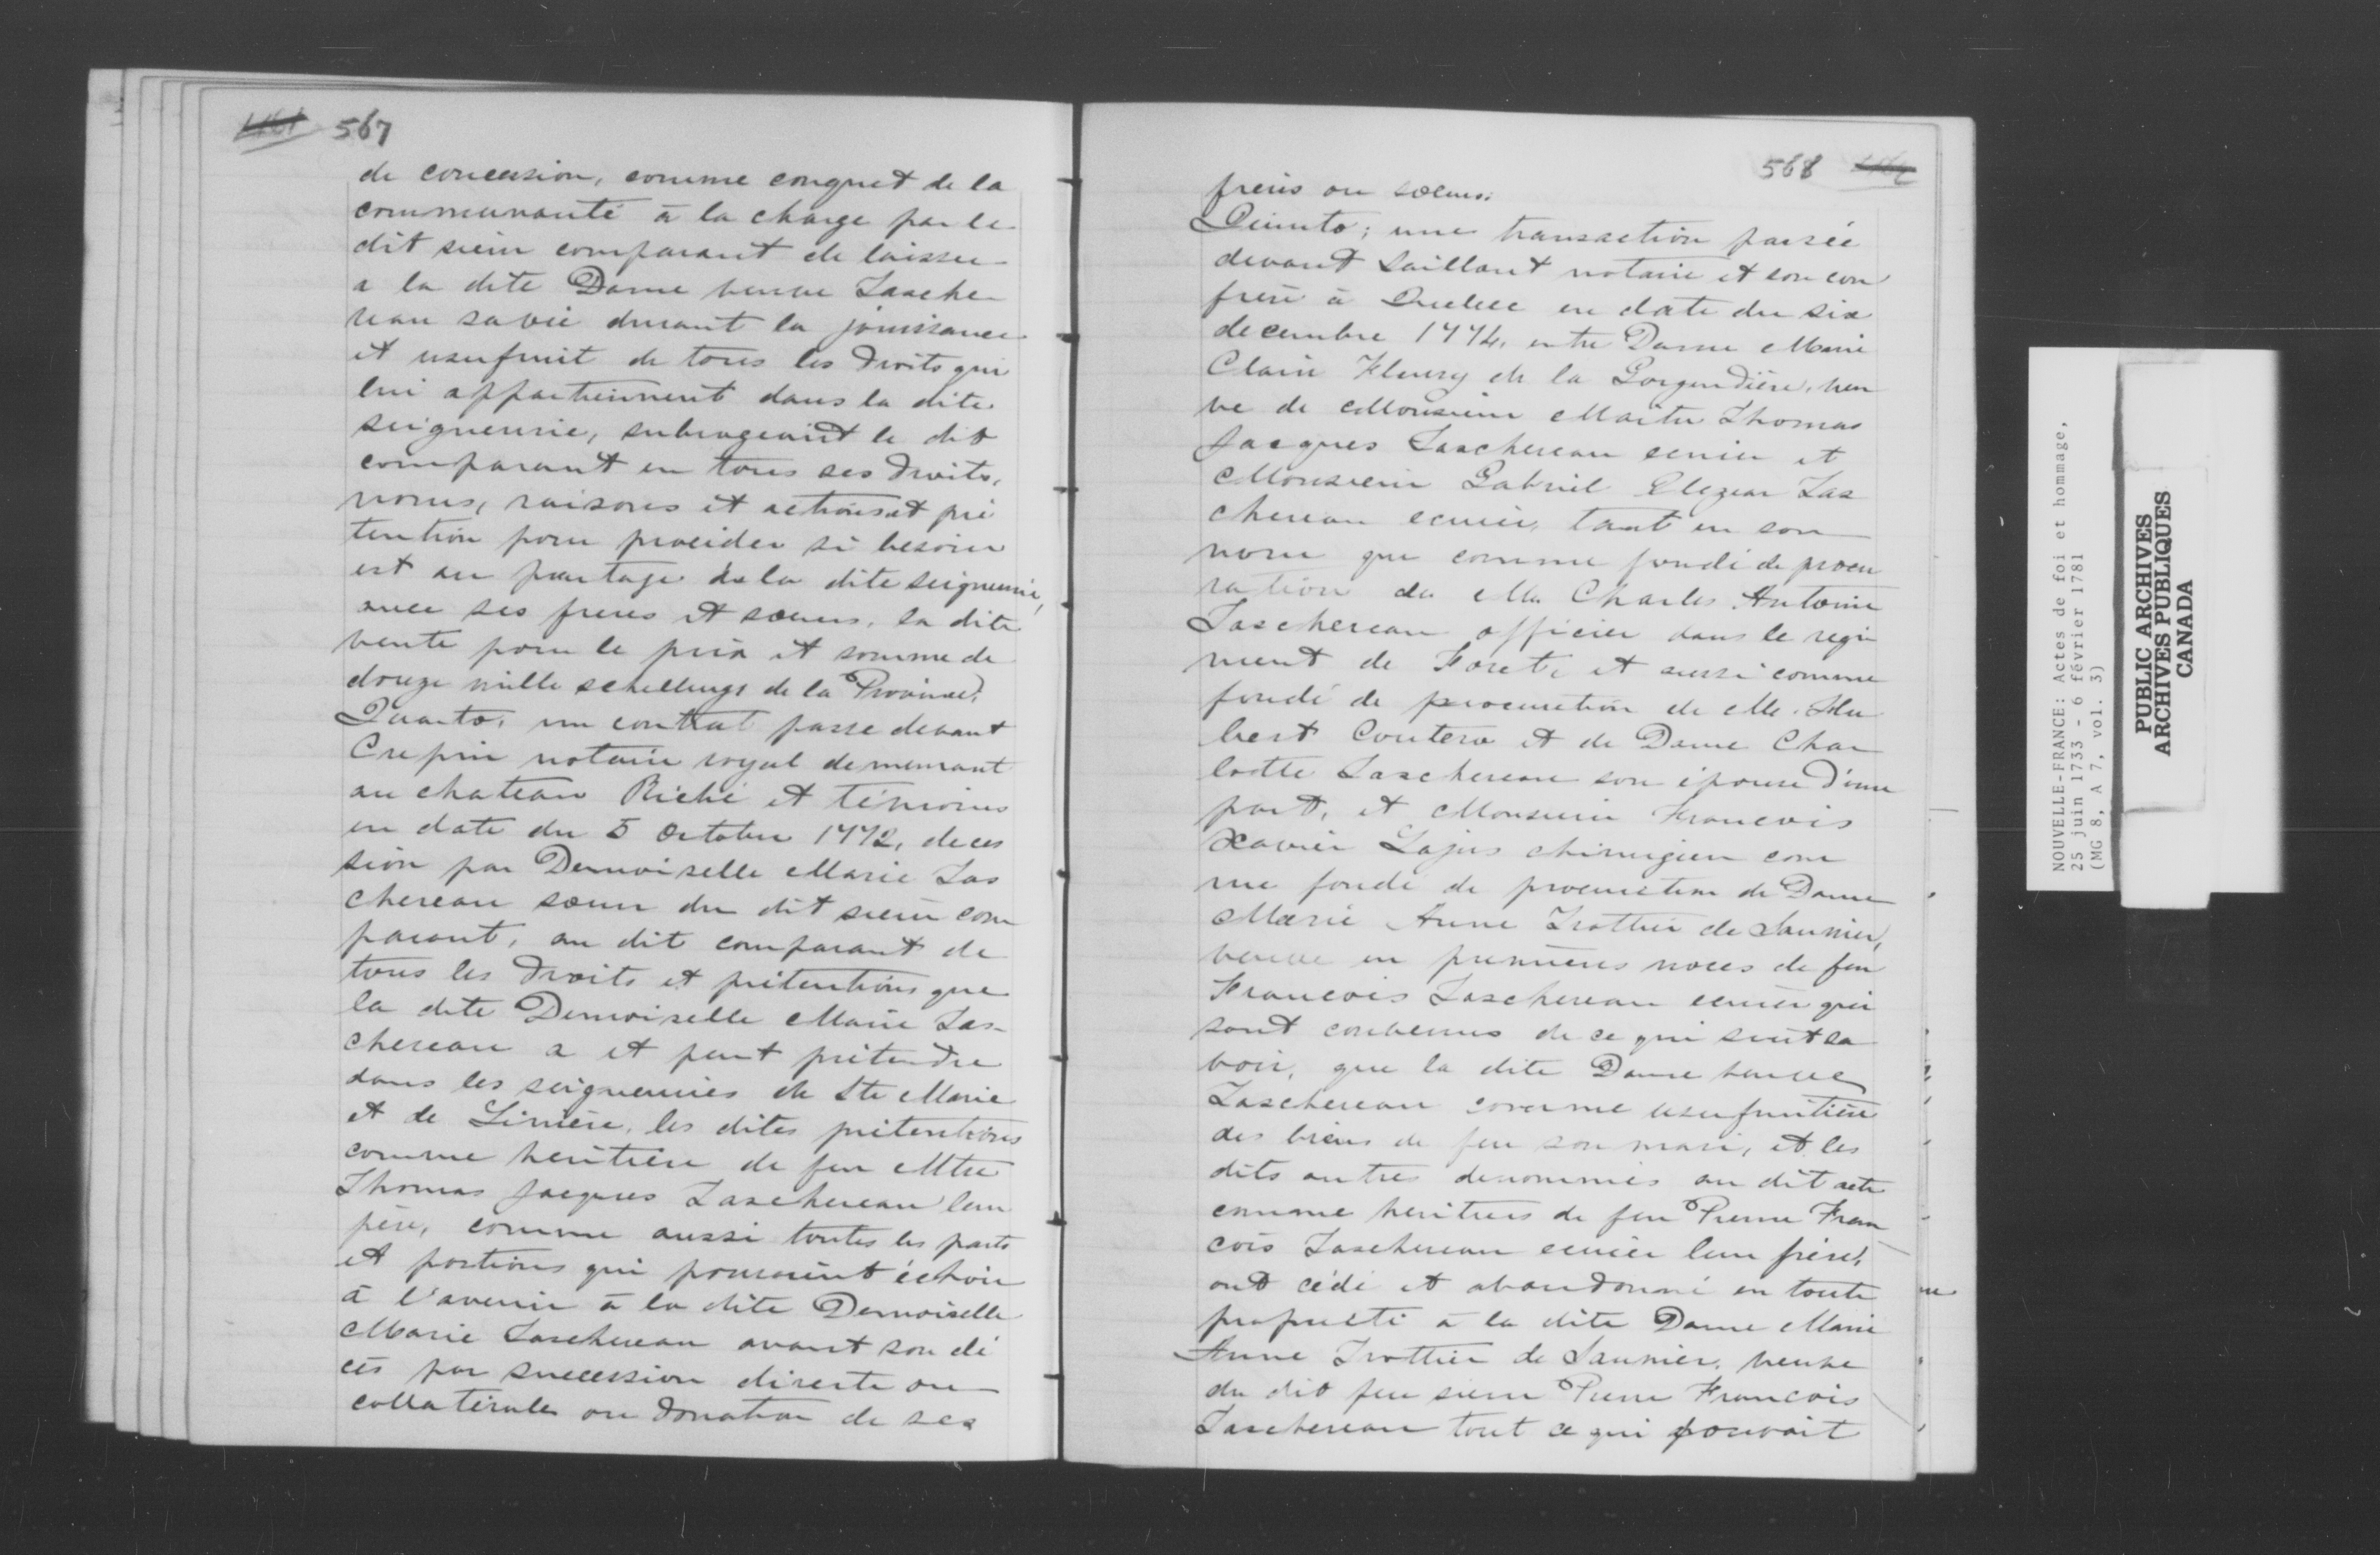 567
de concession, comme conquet de la
communauté à la charge par le
dit sieur comparant de laisser
a la dite Dame veuve Tasche
reau sa vie durant la jouissance
et usufruit de tous les droits qui
lui appartiennent dans la dite
seigneurie, subrogeant le dit
comparant en tous ses droits,
noms, raisons et actions et pré
tention pour proceder si besoin
est au partage de la dite seigneurie,
avec ses freres et soeurs, la dite
vente pour le prix et somme de
douze mille schellings de la Province.
Quarto, un contrat passe devant
Crepin notaire royal demeurant
au chateau Riché et témoins
en date du 5 Octobre 1772, de ces
sion par Demoiselle Marie Tas
chereau soeur du dit sieur com
parant, au dit comparant de
tous les droits et prétentions que
la dite Demoiselle Marie Tas-
chereau a et peut prétendre
dans les seigneuries de Ste Marie
et de Linière, les dites prétentions
comme heritiere de feu Mtre
Thomas Jacques Taschereau leur
père, comme aussi toutes les parts
et portions qui pourraient échoir
à l'avenir à la dite Demoiselle
Marie Taschereau avant son dé
cès par succession directe ou
collatérale ou donation de ses
568
freres ou soeurs.
Quinto; une transaction passée
devant Saillant notaire et son con
frere à Quebec en date du six
decembre 1774, entre Dame Marie
Claire Fleury de la Gorgendière, veu
ve de Monsieur Maitre Thomas
Jacques Taschereau ecuier et
Monsieur Gabriel Elezear Tas
chereau ecuier, tant en son
nom que comme fondé de procu
ration de Mr Charles Antoine
Taschereau officier dans le regi
ment de Foret, et aussi comme
fondé de procuration de Mr. Hu
bert Coutero et de Dame Char
lotte Taschereau son épouse d'une
part, et Monsieur Francois
Xavier Lajus chirurgien com
me fondé de procuration de Dame
Marie Anne Trottier de Saunier,
veuve en premieres noces de feu
Francois Taschereau ecuier qui
sont convenus de ce qui suit sa
voir, que la dite Dame veuve
Taschereau comme usufruitière
des biens de feu son mari, et les
dits autres denommés au dit acte
comme heritiers de feu Pierre Fran
cois Taschereau ecuier leur frère,
ont cédé et abandonné en toute
propriété à la dite Dame Marie
Anne Trottier de Saunier, veuve
du dit feu sieur Pierre Francois
Taschereau tout ce qui pouvait
NOUVELLE-FRANCE: Actes de foi et hommage,
25 juin 1733 - 6 février 1781
(MG 8, A 7, vol. 3)
PUBLIC ARCHIVES
ARCHIVES PUBLIQUES
CANADA